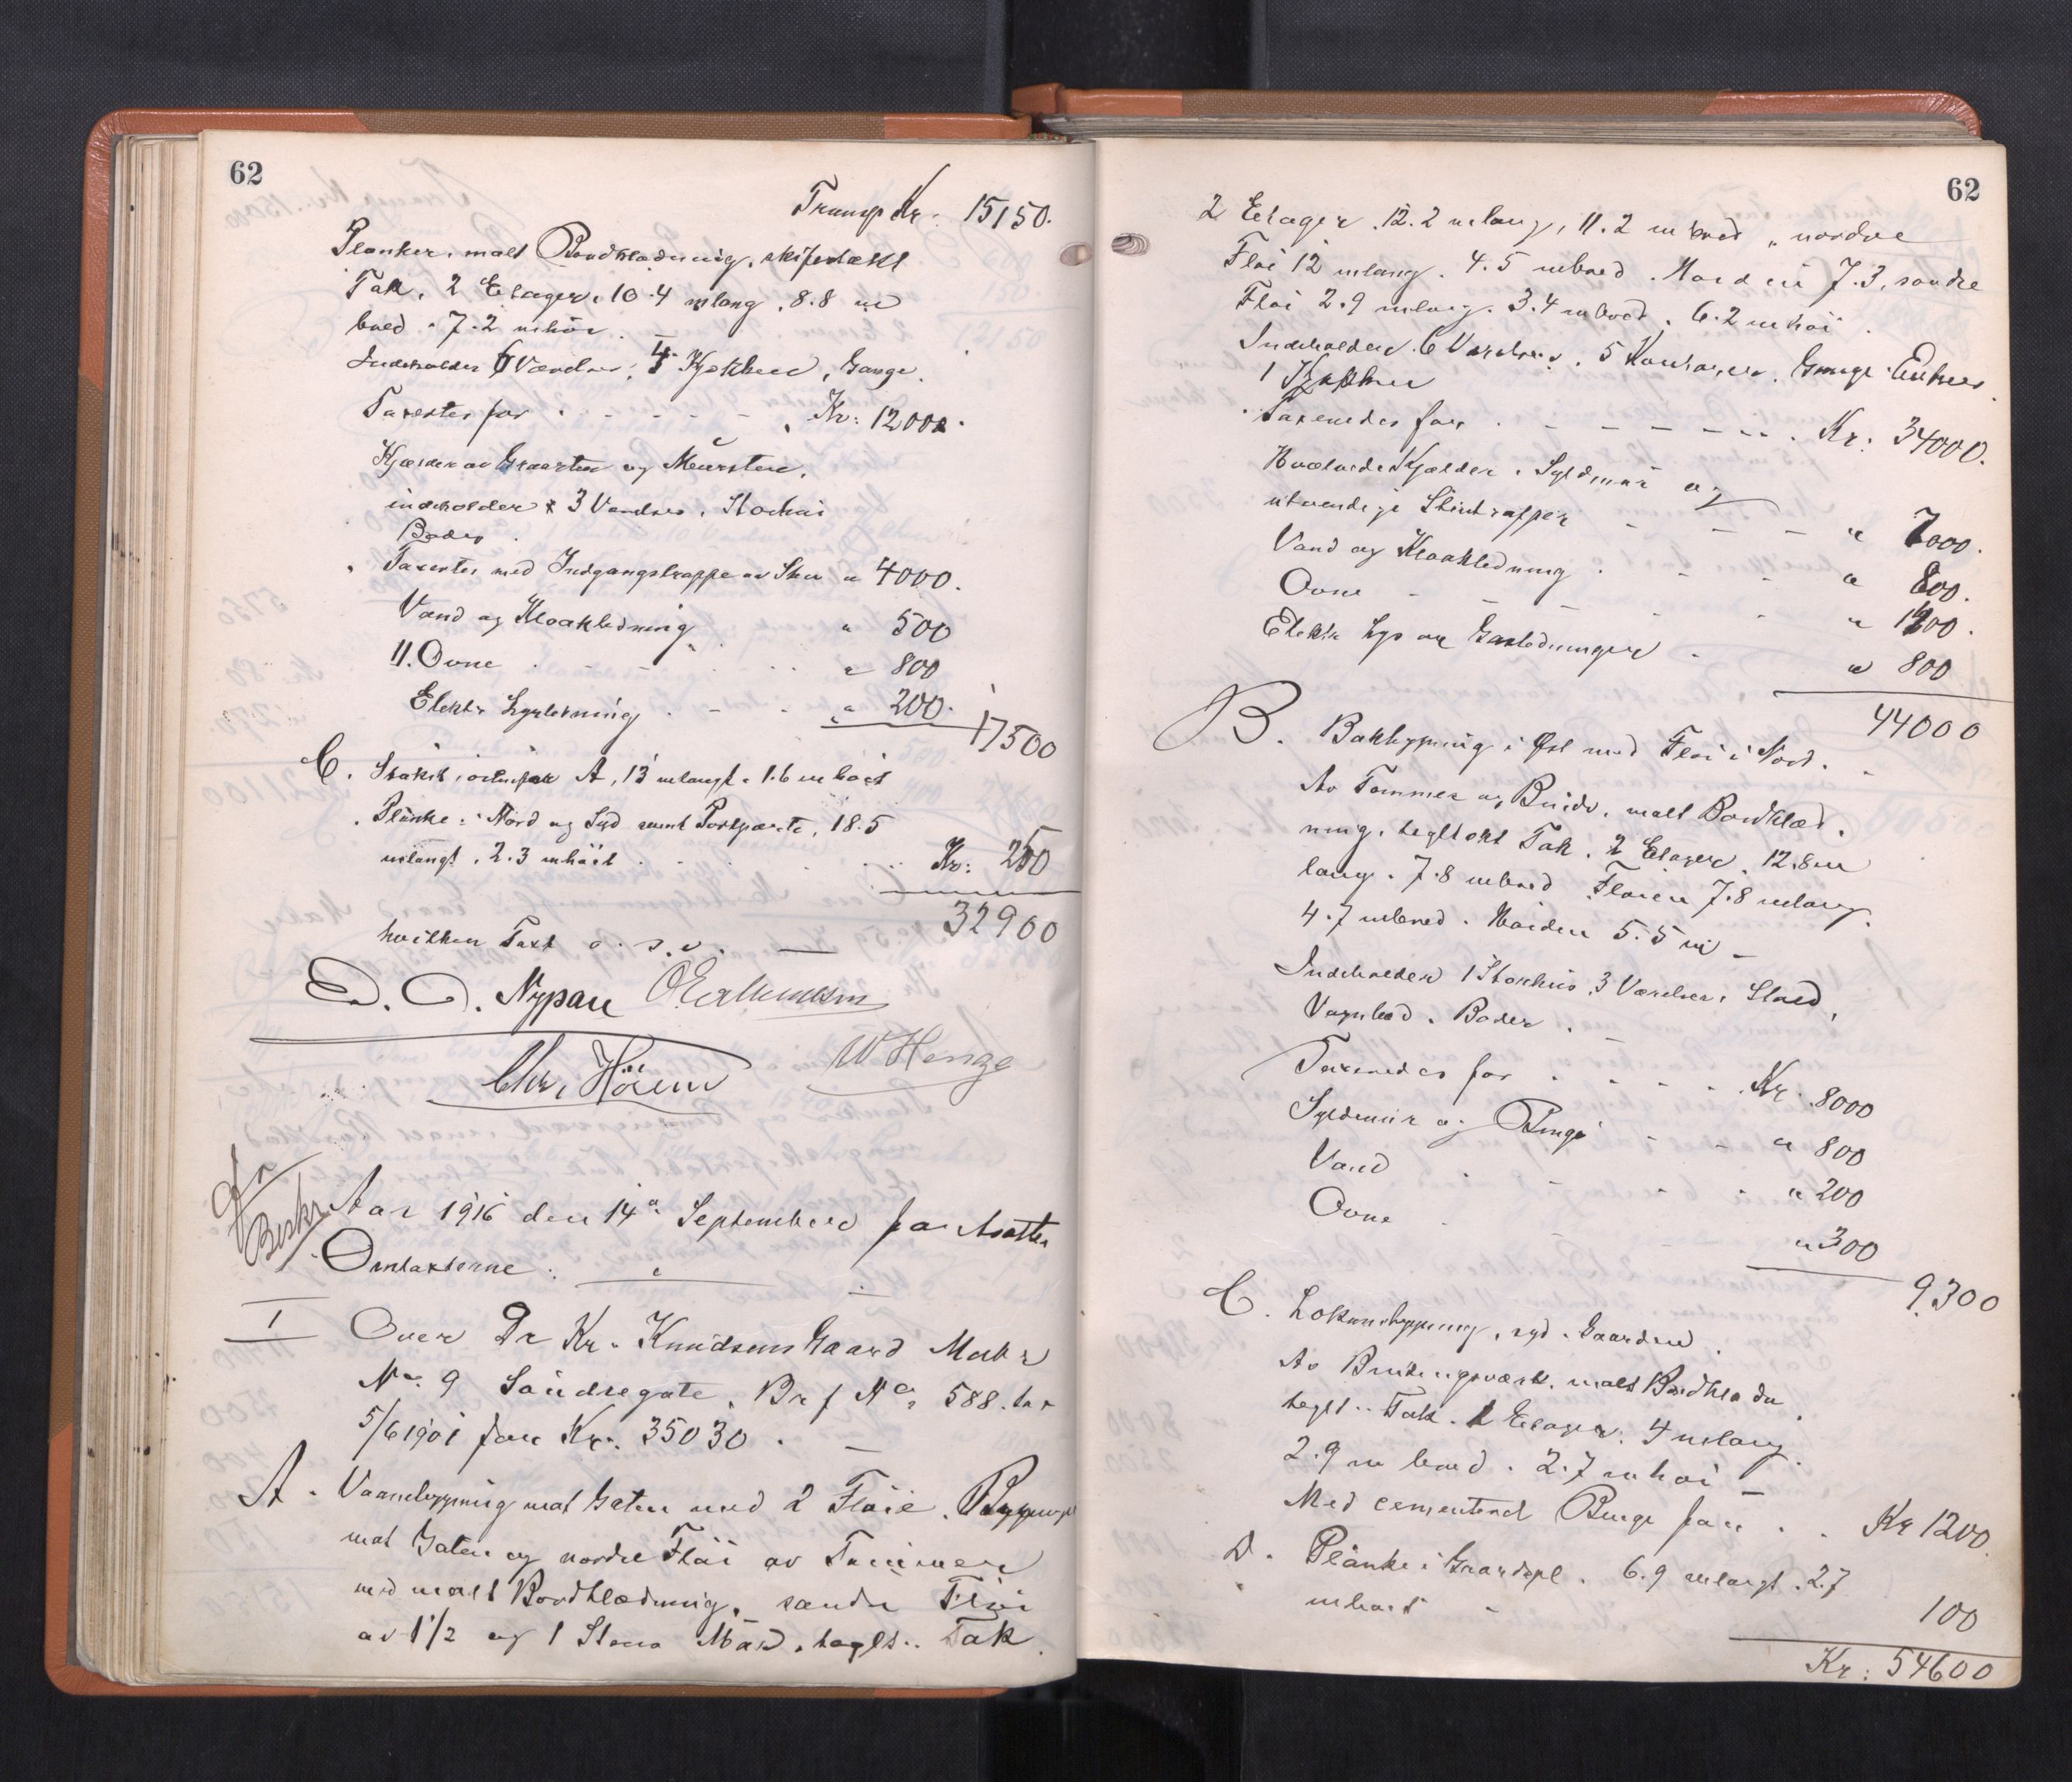 62
Transp Kr. 15150.
Planker, malt Bordklædning, skifertækt
Tak, 2 Etager, 10.4 m lang, 8.8 m
bred, 7.2 m høi.
Indeholder 6 Værelser, 4 Kjøkken, Gange.
Taxertes for . - - - - - , Kr: 12000.
Kjælder av Graasten og Mursten,
indeholder 3 Værelser,
Boder.
Taxertes med Indgangstrappe av Sten " 4000.
Vand og Kloakledning " 500
11. Ovne . - - - . . " 800
Elektr Lysledning . - - . " 200.
17500
C. Stakit i A, 13 m langt, 1.6 m høit
Planke i Nord og Syd samt Portparti, 18.5
m langt, 2.3 m høit . . . Kr: 250
32900
hvilken Taxt o. s. v.
D. O. Nypan
Chr. Hoem W Henge
Beskr
Aar 1916 den 14de September
Omtaxterne:
I Over Dr Kr. Knudsens Gaard Matr
No. 9 Søndregate, Brf No. 588. tax
5/6 1901 for Kr. 35030. -
A. Vaanebygning mot Gaten med 2 Fløie. Bygningen
mot Gaten og nordre Fløi av Tømmer
med malt Bordklædning, søndre Fløi
av 1 1/2 og 1 Stens Mur, teglt.. Tak.
62
2 Etager 12.2 m lang, 11.2 m bred, nordre
Fløi 12 m lang. 4.5 m bred. Høiden 7.3, søndre
Fløi 2.9 m lang. 3.4 m bred, 6.2 m høi.
Indeholder 6 Værelser, 5 Kontorer, Gange
1 Kjøkken
Taxeredes for . - - - - - . Kr: 34000.
Hvælvede Kjælder, Syldmur og
utvendige Stentrapper - - - " 7000.
Vand og Kloakledning . - - " 800.
Ovne - - - . . " 1400.
Elektr Lys og Gasledninger - " 800
44000
B. Bakbygning i Øst med Fløi i Nord. -
Av Tømmer og Bindv, malt Bordklæd.
ning, tegltækt Tak. 2 Etager. 12.8 m
lang. 7.8 m bred Fløien 7.8 m lang.
4.7 m bred. Høiden 5.5 m -
Indeholder 3 Værelser, Stald,
Vognbod, Boder.
Taxeredes for . . . . . Kr. 8000
Syldmur og Binge - - " 800
Vand . - - . " 200
Ovne . - - - " 300
9300
C. Lokumsbygning, syd i Gaarden.
Av Bindingsværk, malt Bordklædn,
teglt.. Tak. 1 Etager. 4 m lang.
2.9 m bred. 2.7 m høi -
Med cementeret Binge for . . Kr 1200.
D. Planke i Gaardspl. 6.9 m langt. 2.7
m høit - 100
Kr: 54600